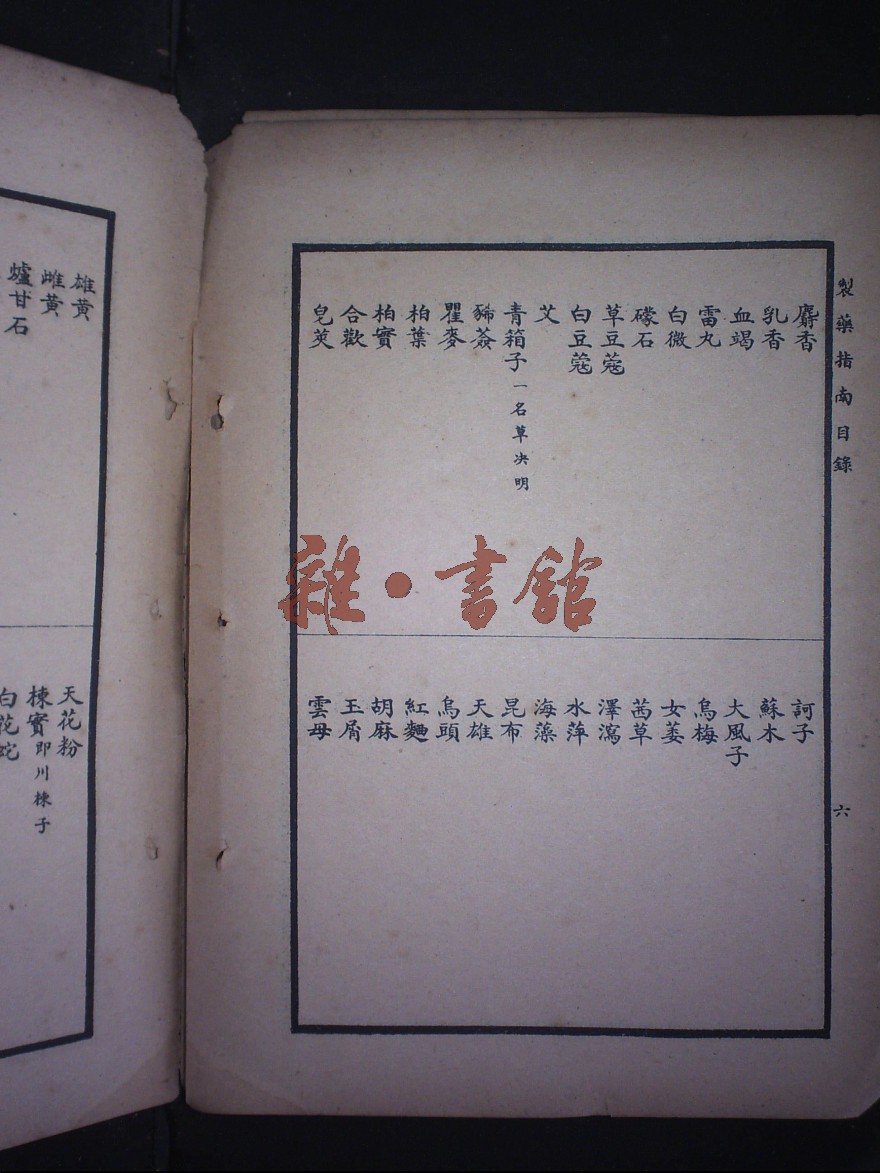 製藥指南目錄
六
麝香
乳香
血竭
雷丸
白微
礞石
草豆蔻
白豆蔻
艾
青箱子 一名草决明
豨薟
瞿麥
柏葉
柏實
合歡
皂莢
訶子
蘇木
大風子
烏梅
女萎
茜草
澤瀉
水萍
海藻
昆布
天雄
烏頭
紅麯
胡麻
玉屑
雲母
雄黃
雌黃
爐甘石
天花粉
楝實 即川楝子
白花蛇
雜·書館